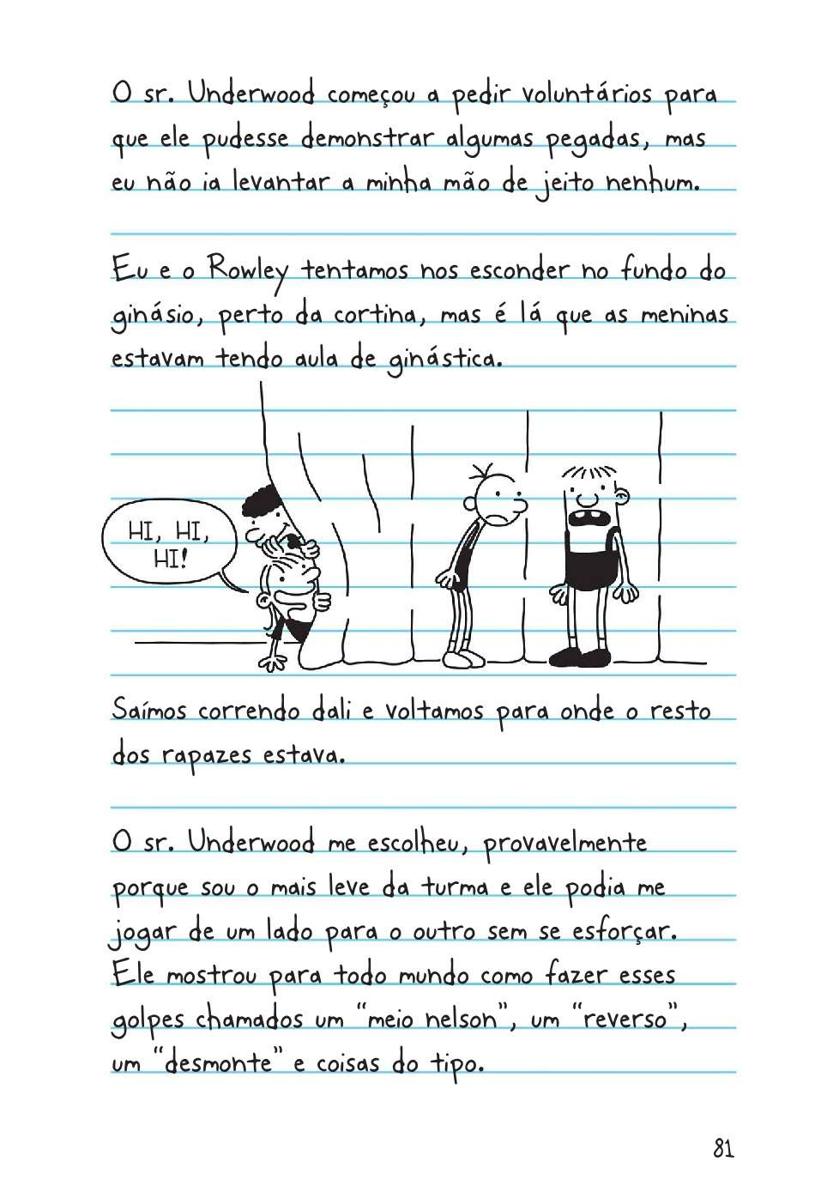 O sr. Underwood começou a pedir voluntários para
que ele pudesse demonstrar algumas pegadas, mas
eu não ia levantar a minha mão de jeito nenhum.
Eu e o Rowley tentamos nos esconder no fundo do
ginásio, perto da cortina, mas é lá que as meninas
estavam tendo aula de ginástica.
HI, HI,
HI!
Saímos correndo dali e voltamos para onde o resto
dos rapazes estava.
O sr. Underwood me escolheu, provavelmente
porque sou o mais leve da turma e ele podia me
jogar de um lado para o outro sem se esforçar.
Ele mostrou para todo mundo como fazer esses
golpes chamados um "meio nelson", um "reverso",
um "desmonte" e coisas do tipo.
81